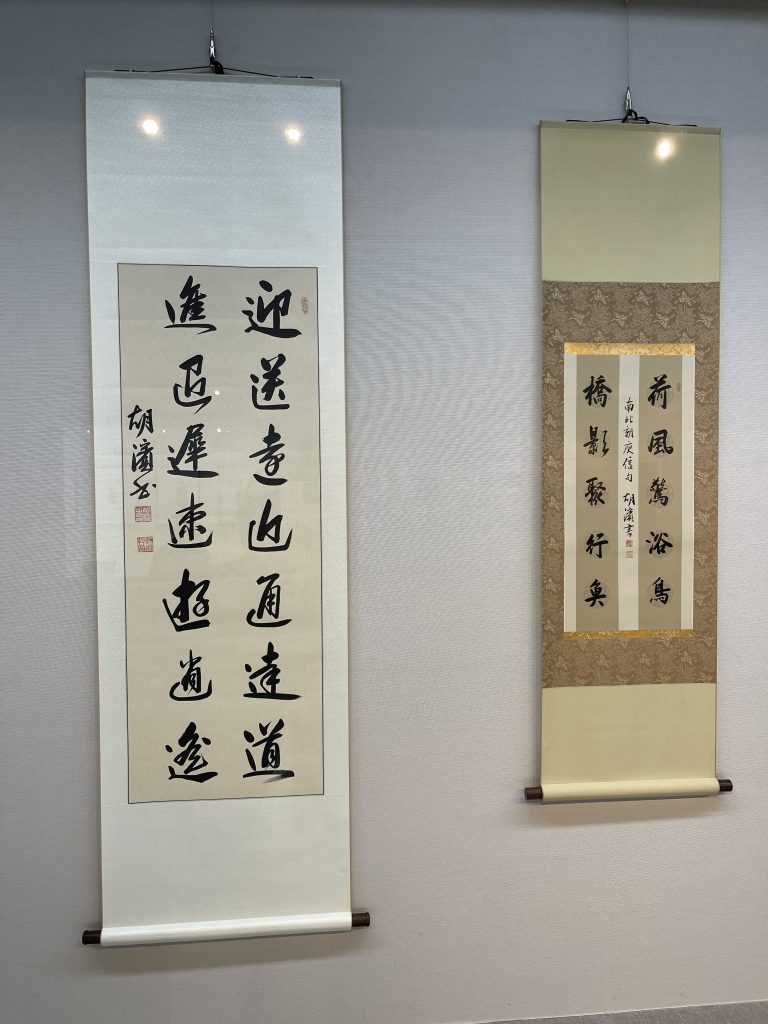 迎送遠近通達道
進退遲速遊逍遙
胡濱书
荷風驚浴鳥
橋影聚行魚
南北朝庾信句 胡濱書